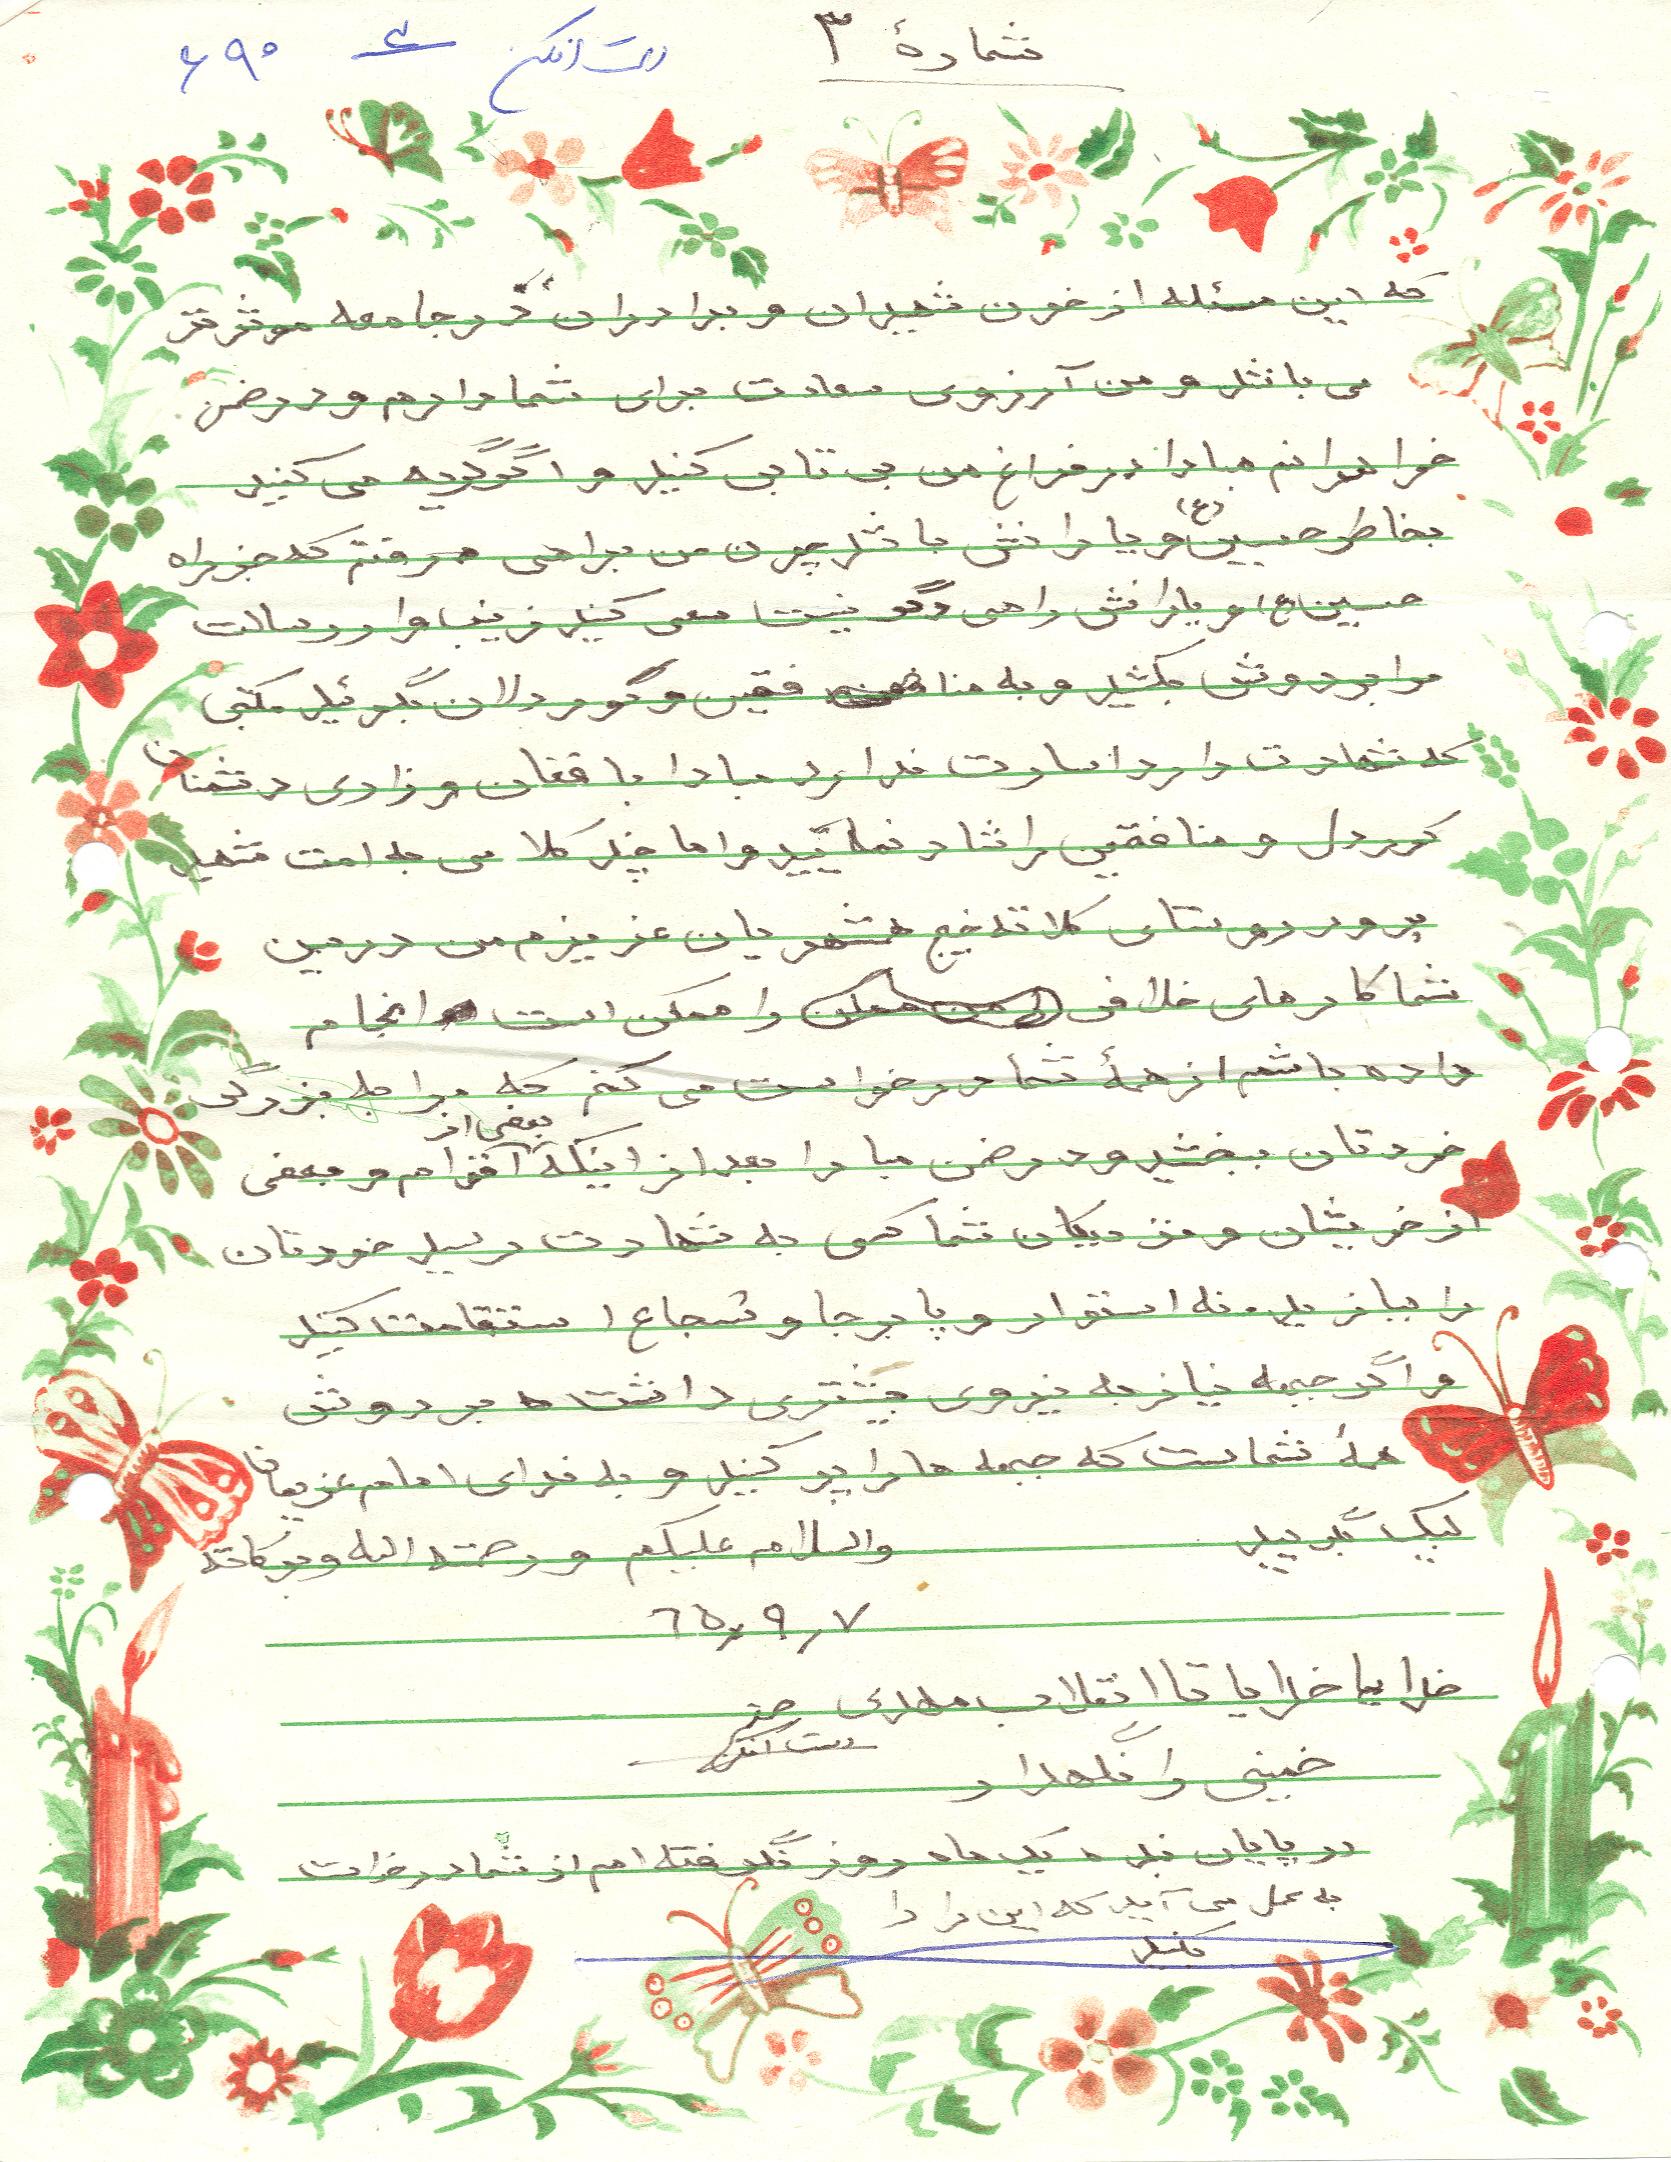 شمارهٔ ۳
۶۹۰
که این مسئله از خون شهیدان و برادران در جامعه موثرتر
می باشد و من آرزوی سعادت برای شما دارم و در ضمن
خواهرانم مبادا در فراغ من بی تابی کنید و اگر گریه می کنید
بخاطر حسین (ع) و یارانش باشد چون من براهی میرفتم که جز راه
حسین (ع) و یارانش راهی دگر نیست سعی کنید زینب وار رسالت
مرا بر دوش بکشید و به منافقین و کوردلان بگوئید مکتبی
که شهادت دارد اسارت ندارد مبادا با فغان و زاری دشمنان
کوردل و منافقین را شاد نمائید و اما چند کلامی به امت شهید
پرور روستای کلاته خیج همشهریان عزیزم من در بین
شما کارهای خلافی را ممکن است انجام
داده باشم از همهٔ شما درخواست می کنم که مرا به بزرگی
خودتان ببخشید و در ضمن مبادا بعد از اینکه بعضی از اقوام و بعضی
از خویشان و نزدیکان شما کسی به شهادت رسید خودتان
را ببازید نه استوار و پا برجا و شجاع استقامت کنید
و اگر جبهه نیاز به نیروی بیشتری داشت بر دوش
همهٔ شماست که جبهه ها را پر کنید و به ندای امام عزیزمان
لبیک بگویید والسلام علیکم و رحمته الله و برکاته
۶۵٫۹٫۷
خدایا خدایا تا انقلاب مهدی
خمینی را نگهدار
در پایان بنده یک ماه روزه نگرفته ام از شما درخواست
به عمل می آید که این را ادا
بکنید